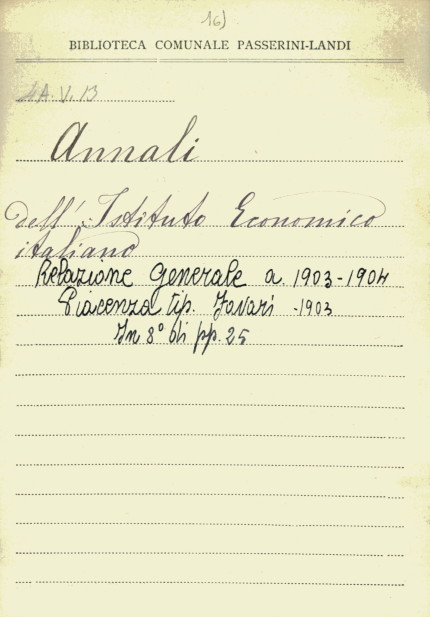 16)
BIBLIOTECA COMUNALE PASSERINI-LANDI
4A.V.13
Annali
dell' Istituto Economico
italiano
Relazione Generale a. 1903-1904
Piacenza tip. Favari -1903
In 8° di pp. 25